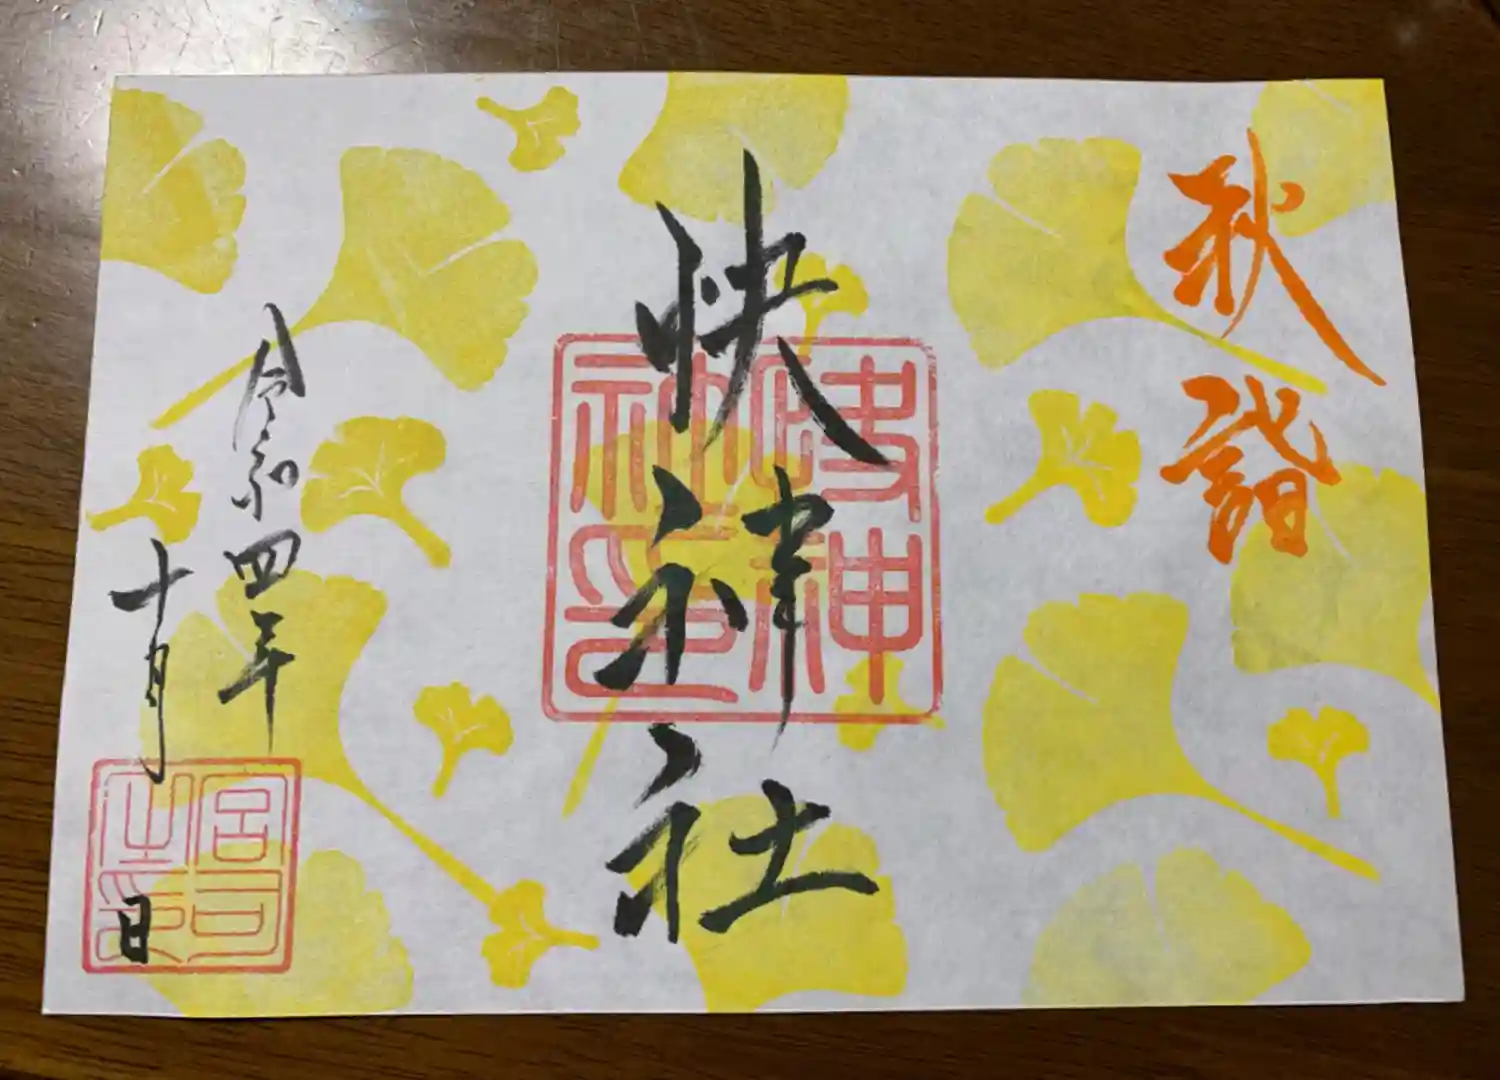 秋詣
快神社
快神
社印
令和四年
十月 日
宮司
之印